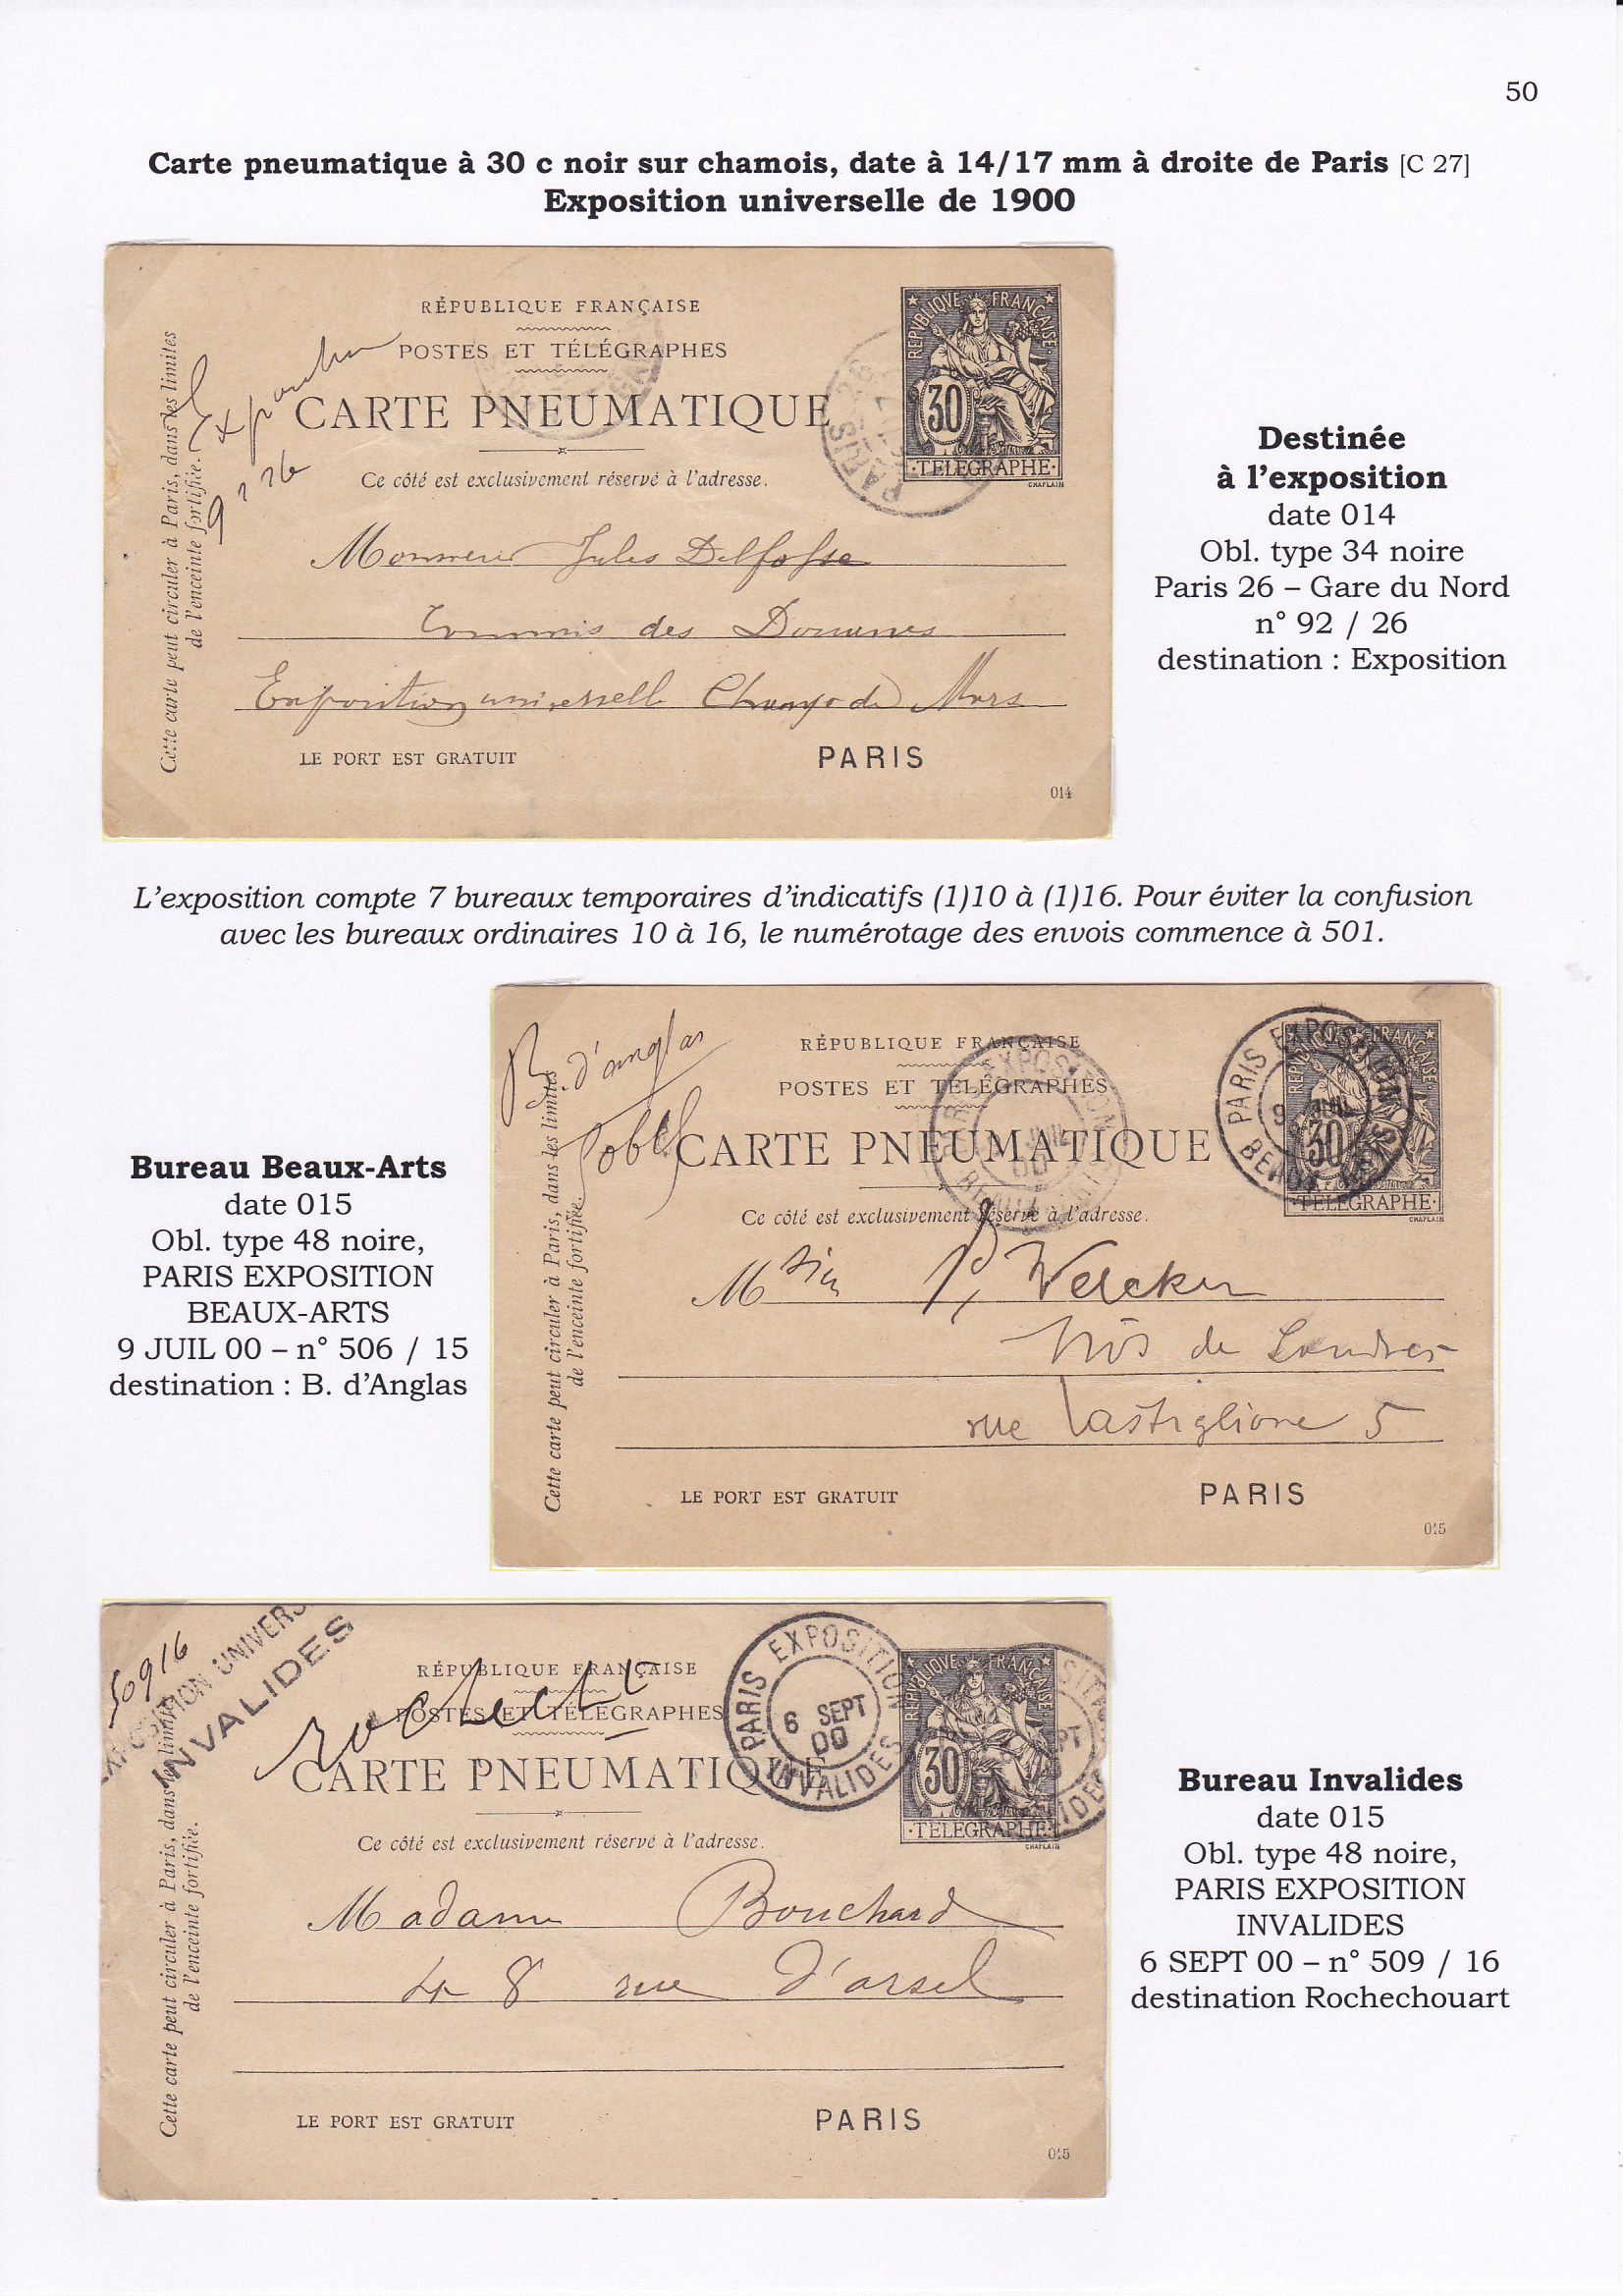 50
Carte pneumatique à 30 c noir sur chamois, date à 14/17 mm à droite de Paris [C 27]
Exposition universelle de 1900
RÉPUBLIQUE FRANÇAISE
POSTES ET TÉLÉGRAPHES
CARTE PNEUMATIQUE
Ce côté est exclusivement réservé à l'adresse.
Cette carte peut circuler à Paris, dans les limites
de l'enceinte fortifiée.
REPUBLIQUE FRANÇAISE
30
·TELEGRAPHE·
CHAPLAIN
PARIS 26
Monsieur Jules Delfosse
Commis des Douanes
Exposition universelle Champ de Mars
LE PORT EST GRATUIT
PARIS
014
Destinée
à l'exposition
date 014
Obl. type 34 noire
Paris 26 – Gare du Nord
n° 92 / 26
destination : Exposition
L'exposition compte 7 bureaux temporaires d'indicatifs (1)10 à (1)16. Pour éviter la confusion
avec les bureaux ordinaires 10 à 16, le numérotage des envois commence à 501.
Bureau Beaux-Arts
date 015
Obl. type 48 noire,
PARIS EXPOSITION
BEAUX-ARTS
9 JUIL 00 – n° 506 / 15
destination : B. d'Anglas
B d'anglas
RÉPUBLIQUE FRANÇAISE
POSTES ET TÉLÉGRAPHES
CARTE PNEUMATIQUE
Ce côté est exclusivement réservé à l'adresse.
Cette carte peut circuler à Paris, dans les limites
de l'enceinte fortifiée.
PARIS EXPOSITION
9 JUIL
30
·TELEGRAPHE·
CHAPLAIN
Msieu P. Welcker
Hôs de Londres
rue Castiglione 5
LE PORT EST GRATUIT
PARIS
015
50916
EXPOSITION UNIVERS
INVALIDES
Rochecht
RÉPUBLIQUE FRANÇAISE
POSTES ET TÉLÉGRAPHES
CARTE PNEUMATIQUE
Ce côté est exclusivement réservé à l'adresse.
Cette carte peut circuler à Paris, dans les limites
de l'enceinte fortifiée.
PARIS EXPOSITION
6 SEPT
00
INVALIDES
REPUBLIQUE FRANÇAISE
30
·TELEGRAPHE·
CHAPLAIN
Madame Bouchard
48 rue d'orsel
LE PORT EST GRATUIT
PARIS
015
Bureau Invalides
date 015
Obl. type 48 noire,
PARIS EXPOSITION
INVALIDES
6 SEPT 00 – n° 509 / 16
destination Rochechouart